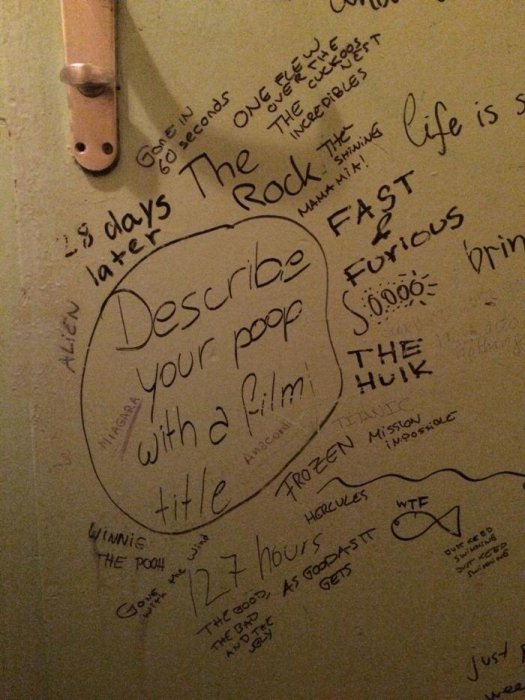 ONE FLEW
OVER THE
CUCKOOS
NEST
GONE IN
60 seconds
THE
INCREDIBLES
The
Rock
THE
SHINING
MAMA MIA!
life is
28 days
later
FAST
&
Furious
brin
Describe
your poop
with a film
title
ALIEN
NIAGARA
THE
HULK
TITANIC
MISSION
IMPOSSIBLE
FROZEN
HERCULES
WTF
JUST KEED
SWIMMING
JUST KEED
SWIMMING
WINNIE
THE POOH
Gone
with the wind
127 hours
AS GOOD AS IT
GETS
THE GOOD,
THE BAD
AND THE
UGLY
just